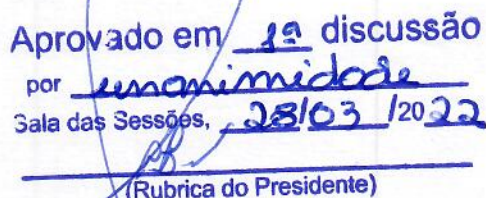 Aprovado em 1ª discussão
por unanimidade
Sala das Sessões, 28/03/2022
(Rubrica do Presidente)